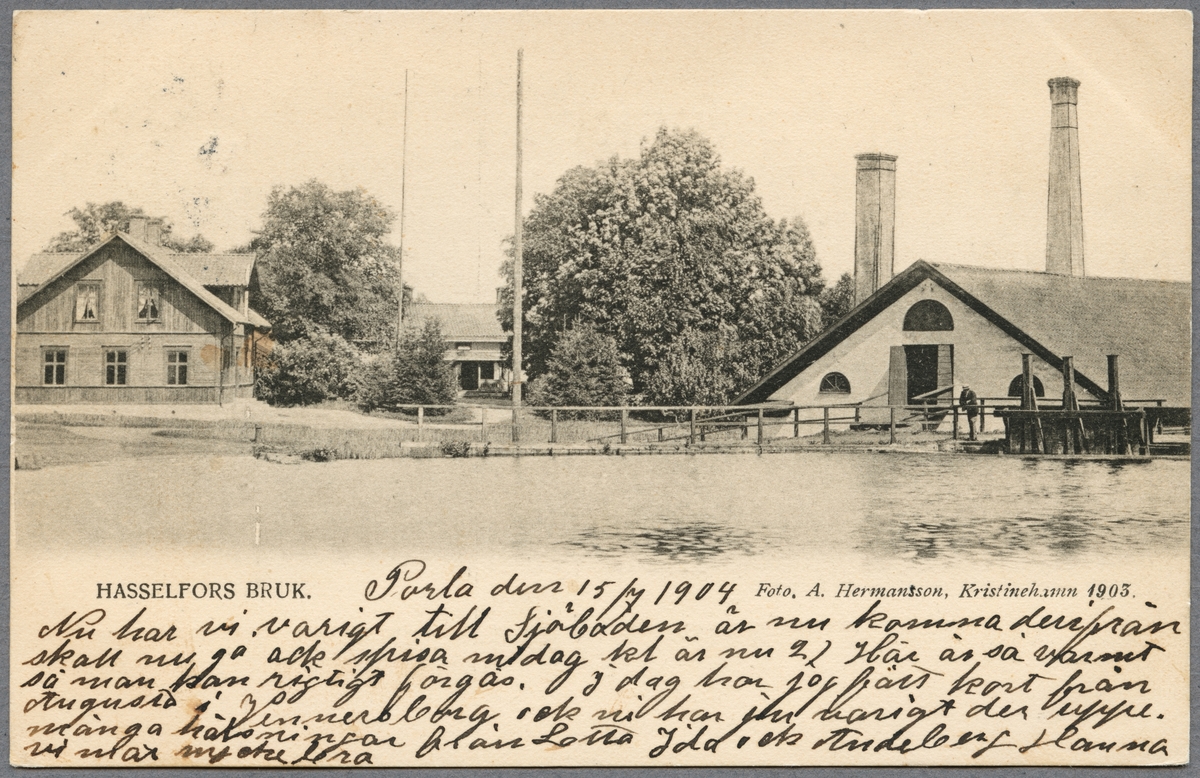 HASSELFORS BRUK.
Porla den 15/7 1904
Foto. A. Hermansson, Kristinehamn 1903.
Nu har vi varigt till Sjöboden är nu komna derifrån
skall nu ga ock spisa midag kl är nu 2, Här är så varmt
så man kan rigtigt förgås. I dag har jog fått kort från
Augusta i Jennersborg, ock ni har ju varigt der uppe.
många hälsningar från Lotta Ida ock Andeberg Hanna
vi mår mycke bra